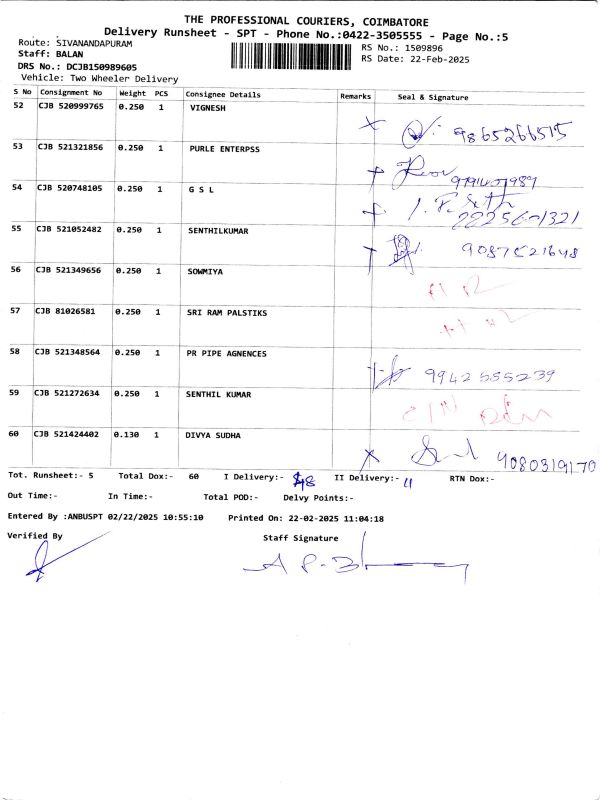 THE PROFESSIONAL COURIERS, COIMBATORE
Delivery Runsheet - SPT - Phone No.:0422-3505555 - Page No.:5
Route: SIVANANDAPURAM
RS No.: 1509896
Staff: BALAN
RS Date: 22-Feb-2025
DRS No.: DCJB150989605
Vehicle: Two Wheeler Delivery
S No Consignment No Weight PCS Consignee Details Remarks Seal & Signature
52 CJB 520999765 0.250 1 VIGNESH
9865266515
53 CJB 521321856 0.250 1 PURLE ENTERPSS
54 CJB 520748105 0.250 1 G S L
55 CJB 521052482 0.250 1 SENTHILKUMAR
56 CJB 521349656 0.250 1 SOWMIYA
57 CJB 81026581 0.250 1 SRI RAM PALSTIKS
58 CJB 521348564 0.250 1 PR PIPE AGNENCES
9942555239
59 CJB 521272634 0.250 1 SENTHIL KUMAR
60 CJB 521424402 0.130 1 DIVYA SUDHA
9080319170
Tot. Runsheet:- 5 Total Dox:- 60 I Delivery:- 48 II Delivery:- 11 RTN Dox:-
Out Time:- In Time:- Total POD:- Delvy Points:-
Entered By :ANBUSPT 02/22/2025 10:55:10 Printed On: 22-02-2025 11:04:18
Verified By Staff Signature